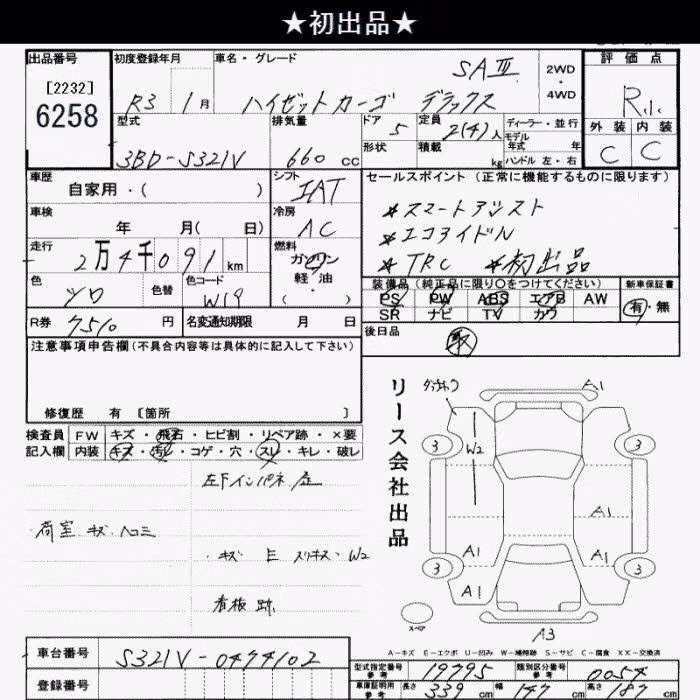 ★初出品★
出品番号 初度登録年月 車名・グレード 評価点
[2232]
6258
R3 1月 ハイゼットカーゴ デラックス SAⅢ 2WD・4WD
外装 内装
C C
型式 排気量 ドア 定員 ディーラー・並行
3BD-S321V 660cc 5 2(4)人 モデル年式 年
形状 積載 kg ハンドル 左・右
車歴 シフト セールスポイント(正常に機能するものに限ります)
自家用・( ) IAT
車検 冷房 ★スマートアシスト
年 月( 日) AC ★エコアイドル
走行 燃料 ★TRC ★初出品
2万4千091km ガソリン
軽・油
・( )
色 色替 色コード 装備品(純正品に限り○をつけてください) 新車保証書
シロ W19 PS PW ABS エアB AW 有・無
SR ナビ TV カワ
R券 7510円 名変通知期限 月 日 後日品
注意事項申告欄(不具合内容等は具体的に記入して下さい)
修復歴 有 [箇所 ]
検査員 FW キズ・飛石・ヒビ割・リペア跡・×要
記入欄 内装 キズ・汚レ・コゲ・穴・スレ・キレ・破レ
荷室 キズ、ヘコミ
看板跡
リース会社出品
A1
3 W2 3
A1
A1 A1
3 3
A1
スペア
A3
A-キズ E-エクボ U-凹み W-補修跡 S-サビ C-腐食 XX-交換済
車台番号 S321V-0474102
登録番号
型式指定番号 参考 19795 類別区分番号 参考 0054
車庫証明用 参考 長さ 339cm 幅 147cm 高さ cm